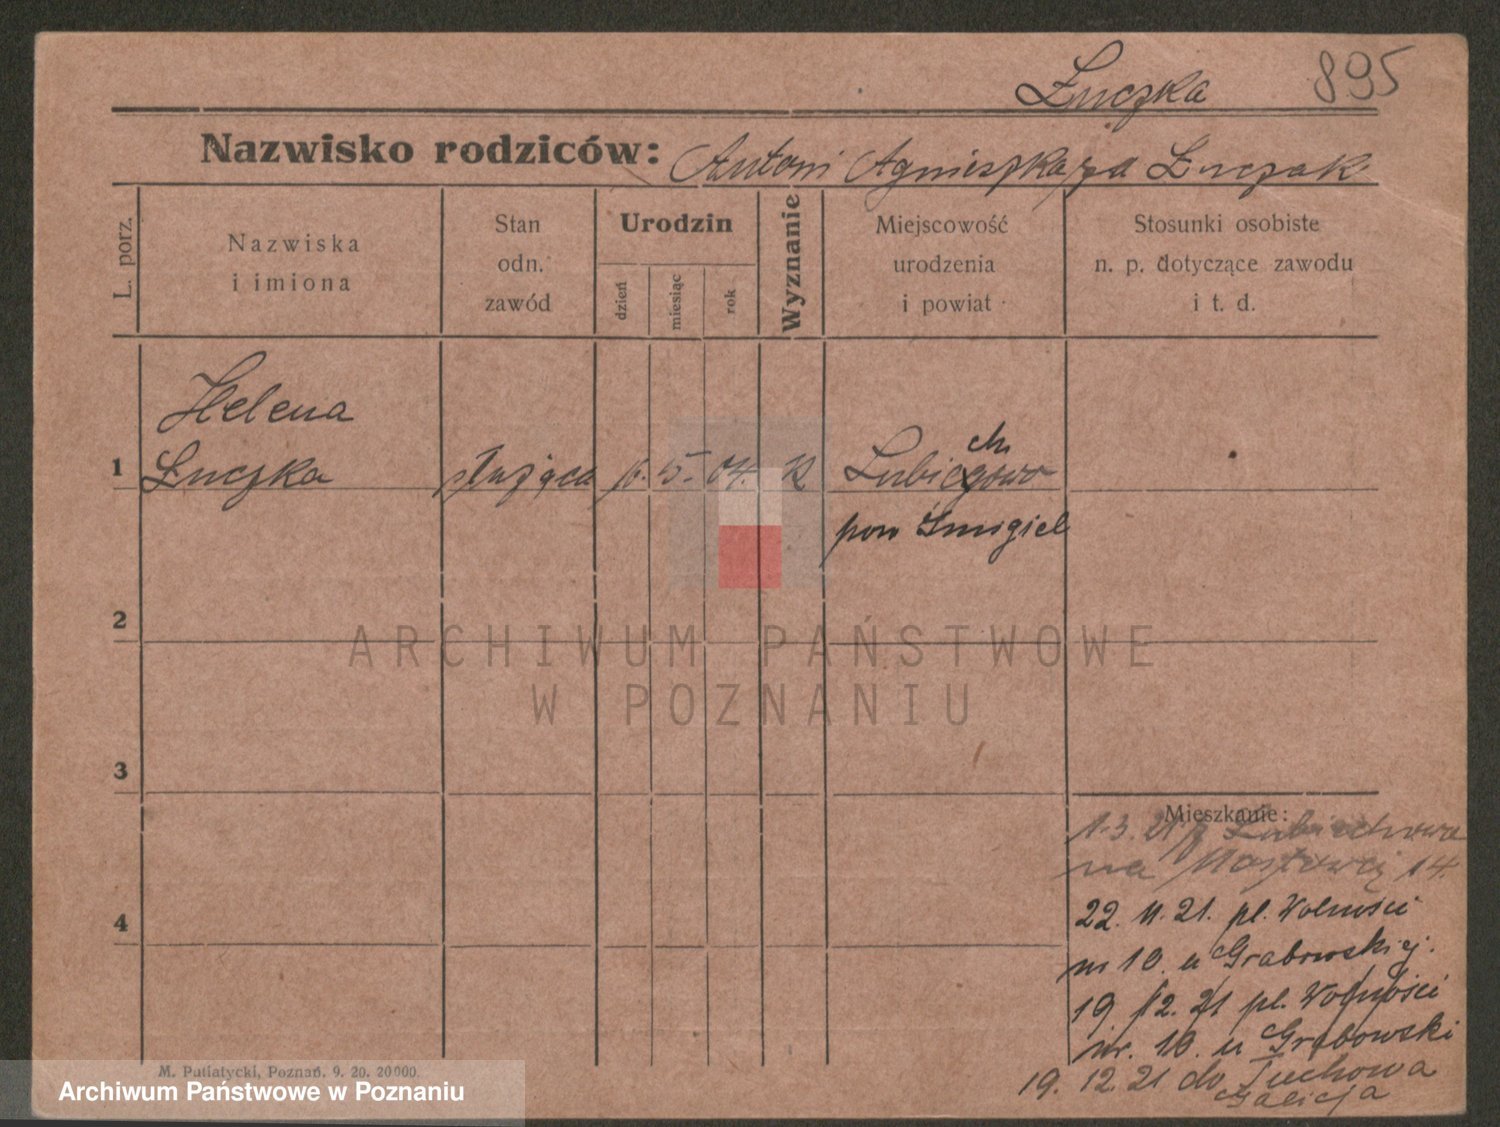 Łuczka 895
Nazwisko rodziców: Antoni Agnieszka zd Łuczak
L. porz.
Nazwiska
i imiona
Stan
odn.
zawód
Urodzin
dzień
miesiąc
rok
Wyznanie
Miejscowość
urodzenia
i powiat
Stosunki osobiste
n. p. dotyczące zawodu
i t. d.
Helena
ch
1 Łuczka służąca 16. 5. 04. K Lubiegowo
pow Śmigiel
2
ARCHIWUM PAŃSTWOWE
W POZNANIU
3
Mieszkanie:
1.3.21 z Lubiechowa
na Mostowej 14.
4
22. 11. 21. pl. Wolności
nr 10. u Grabowskiej.
19 12. 21 pl. Wolności
nr. 10. u Grabowski
19. 12 21 do Tuchowa
Galicja
M. Putiatycki, Poznań. 9. 20. 20000.
Archiwum Państwowe w Poznaniu